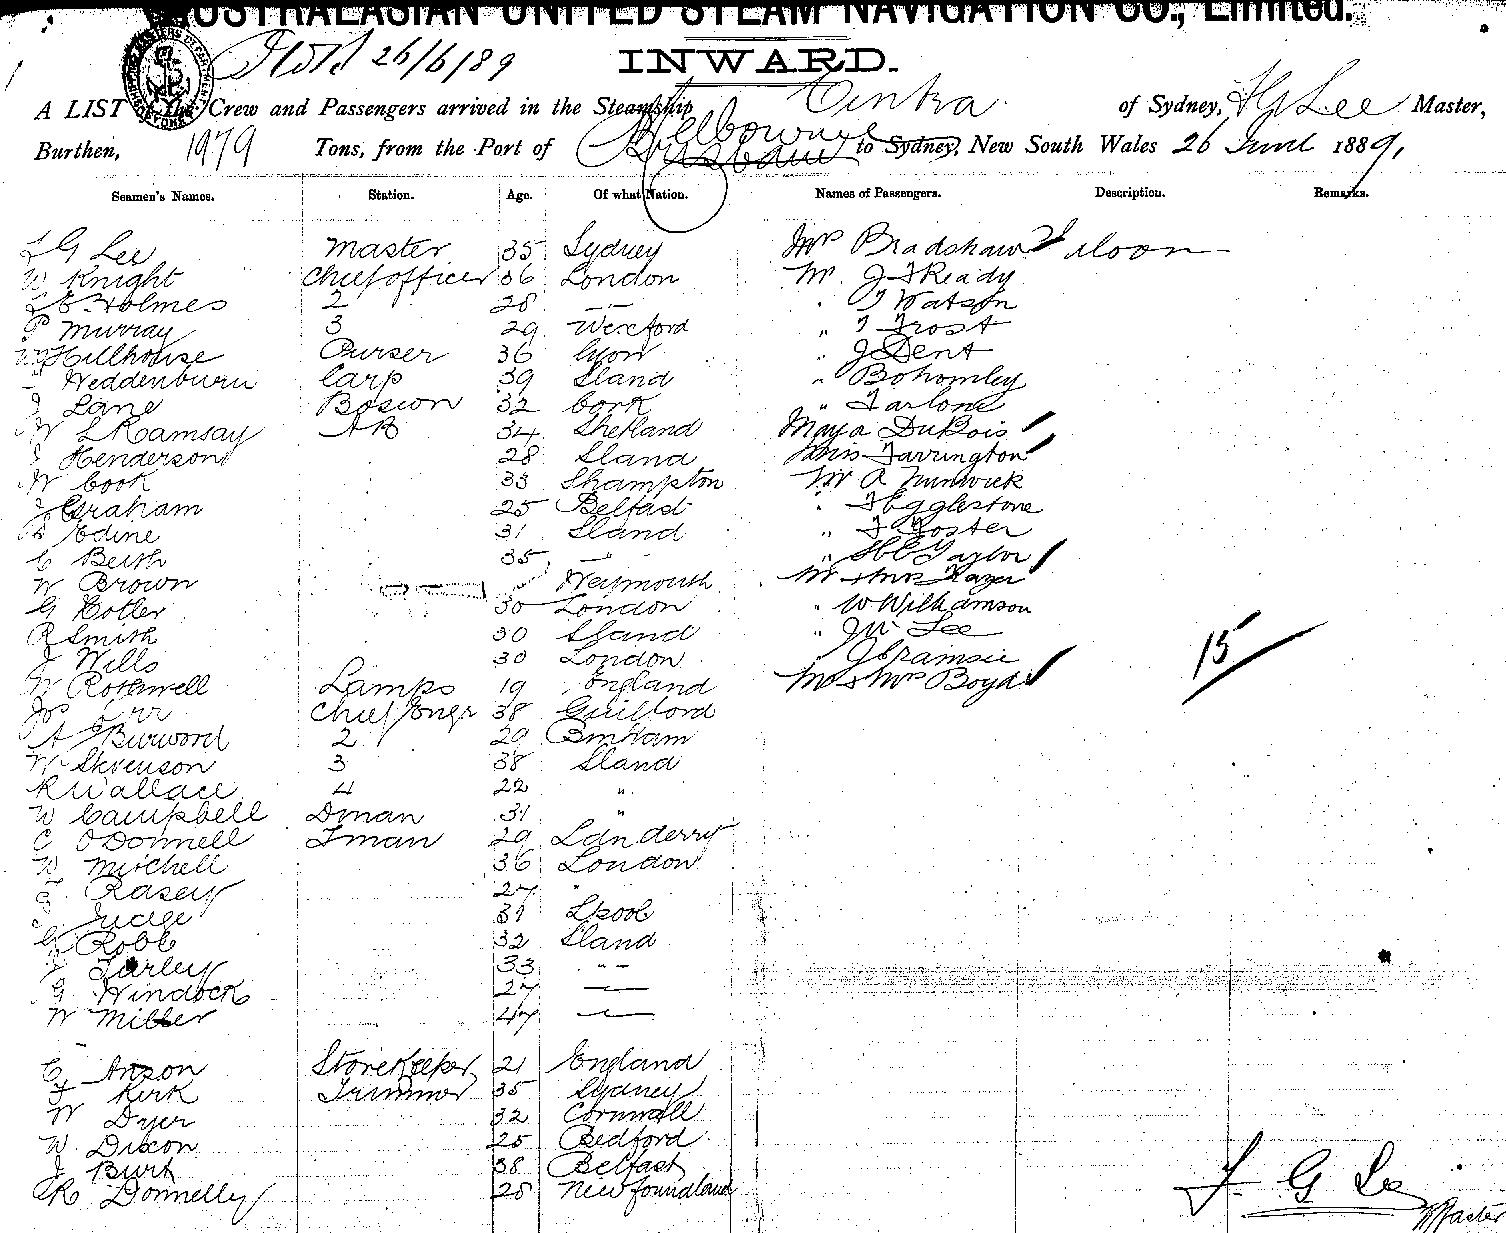 AUSTRALASIAN UNITED STEAM NAVIGATION CO., Limited.
26/6/89
INWARD.
A LIST of the Crew and Passengers arrived in the Steamship Cintra of Sydney, F G Lee Master,
Burthen, 1979 Tons, from the Port of Melbourne Brisbane to Sydney, New South Wales 26 June 1889,
Seamen's Names. Station. Age. Of what Nation. Names of Passengers. Description. Remarks.
F G Lee Master 35 Sydney Mrs Bradshaw Saloon
W Knight Chief officer 36 London Mr. J F Ready
Holmes 2 28 — " T Watson
P Murray 3 29 Wexford " T Frost
Hillhouse Purser 36 Lyon " J Dent
Weddenburn Carp 39 Sland "
J Lane Boswn 32 Cork " Farlone
W L Ramsay AB 34 Shetland Maya DuBois
J Henderson 28 Sland Miss Farrington
W Cook 33 Shampton Mr A
J Graham 25 Belfast " F Egglestone
Edine 31 Sland " F Foster
C 35 — " Taylor
W Brown Weymouth Mr & Mrs
G Cotler 30 London " W Williamson
R Smith 30 Sland " Lee
J Wills 30 London
W Rothwell Lamps 19 England Mr & Mrs Boyd
15
Jos Chief Engr 38 Guilford
A Burword 2 29 Bmham
W Stevenson 3 38 Sland
R Wallace 4 22 "
W Campbell Dman 31 "
C O'Donnell Fman 29 Ldnderry
W Mitchell 36 London
Rasey 27 "
Judge 31 Lpool
G Robb 32 Sland
Farley 33 "
G Windock 27 —
W Miller 47 —
C Anson Storekeeper 21 England
F Kirk Trimmer 35 Sydney
W Dyer 32 Cornwall
W Dixon 25 Bedford
J Burt 38 Belfast
R Donnelly 28 Newfoundland
F. G Lee
Master